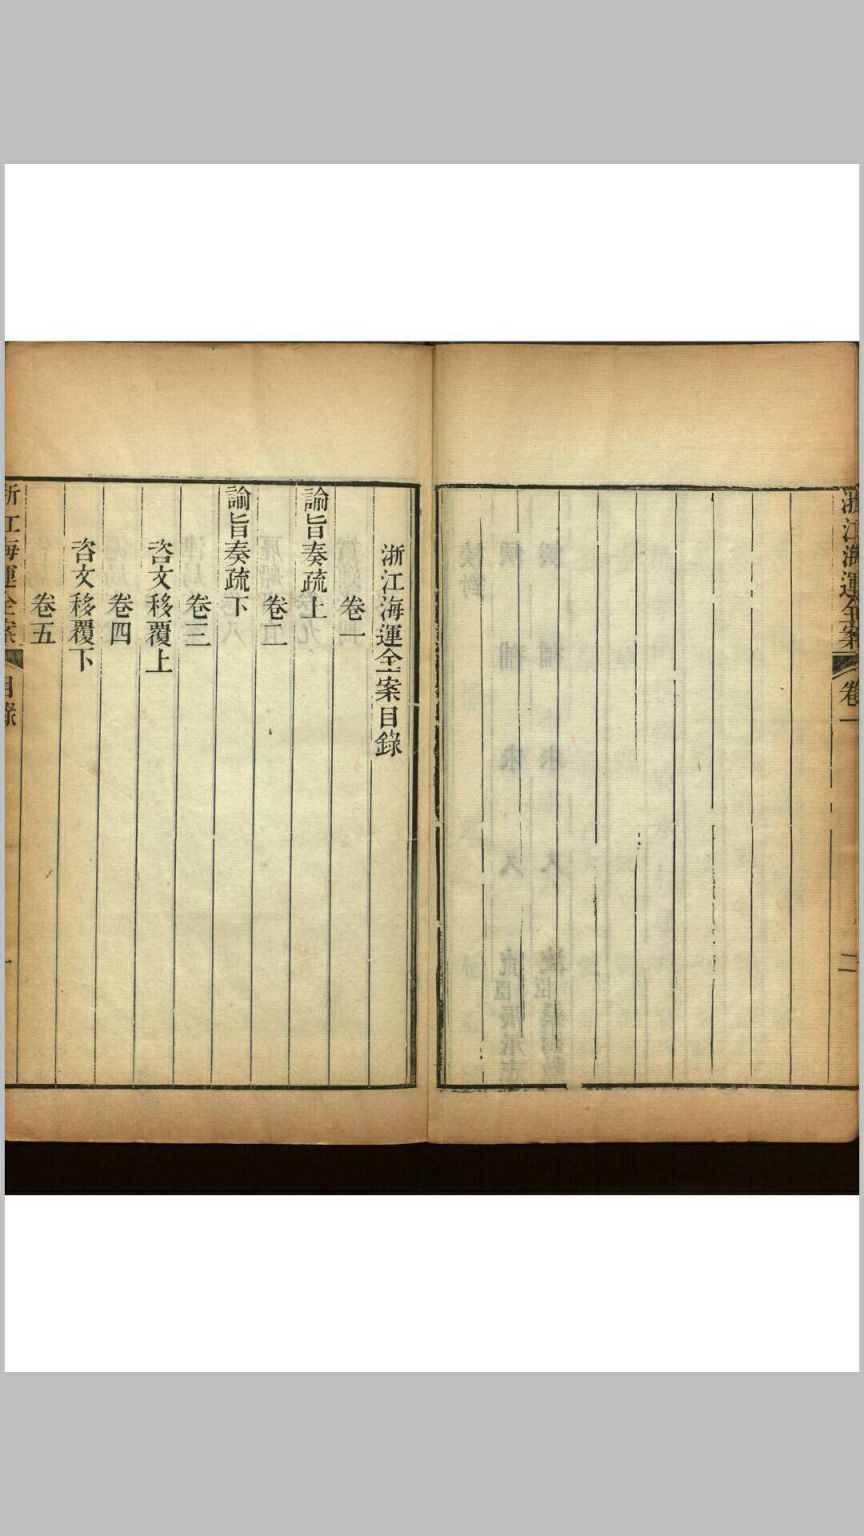 浙江海運全案
卷一
二
浙江海運全案目錄
卷一
諭旨奏疏上
卷二
諭旨奏疏下
卷三
咨文移覆上
卷四
咨文移覆下
卷五
浙江海運全案
目錄